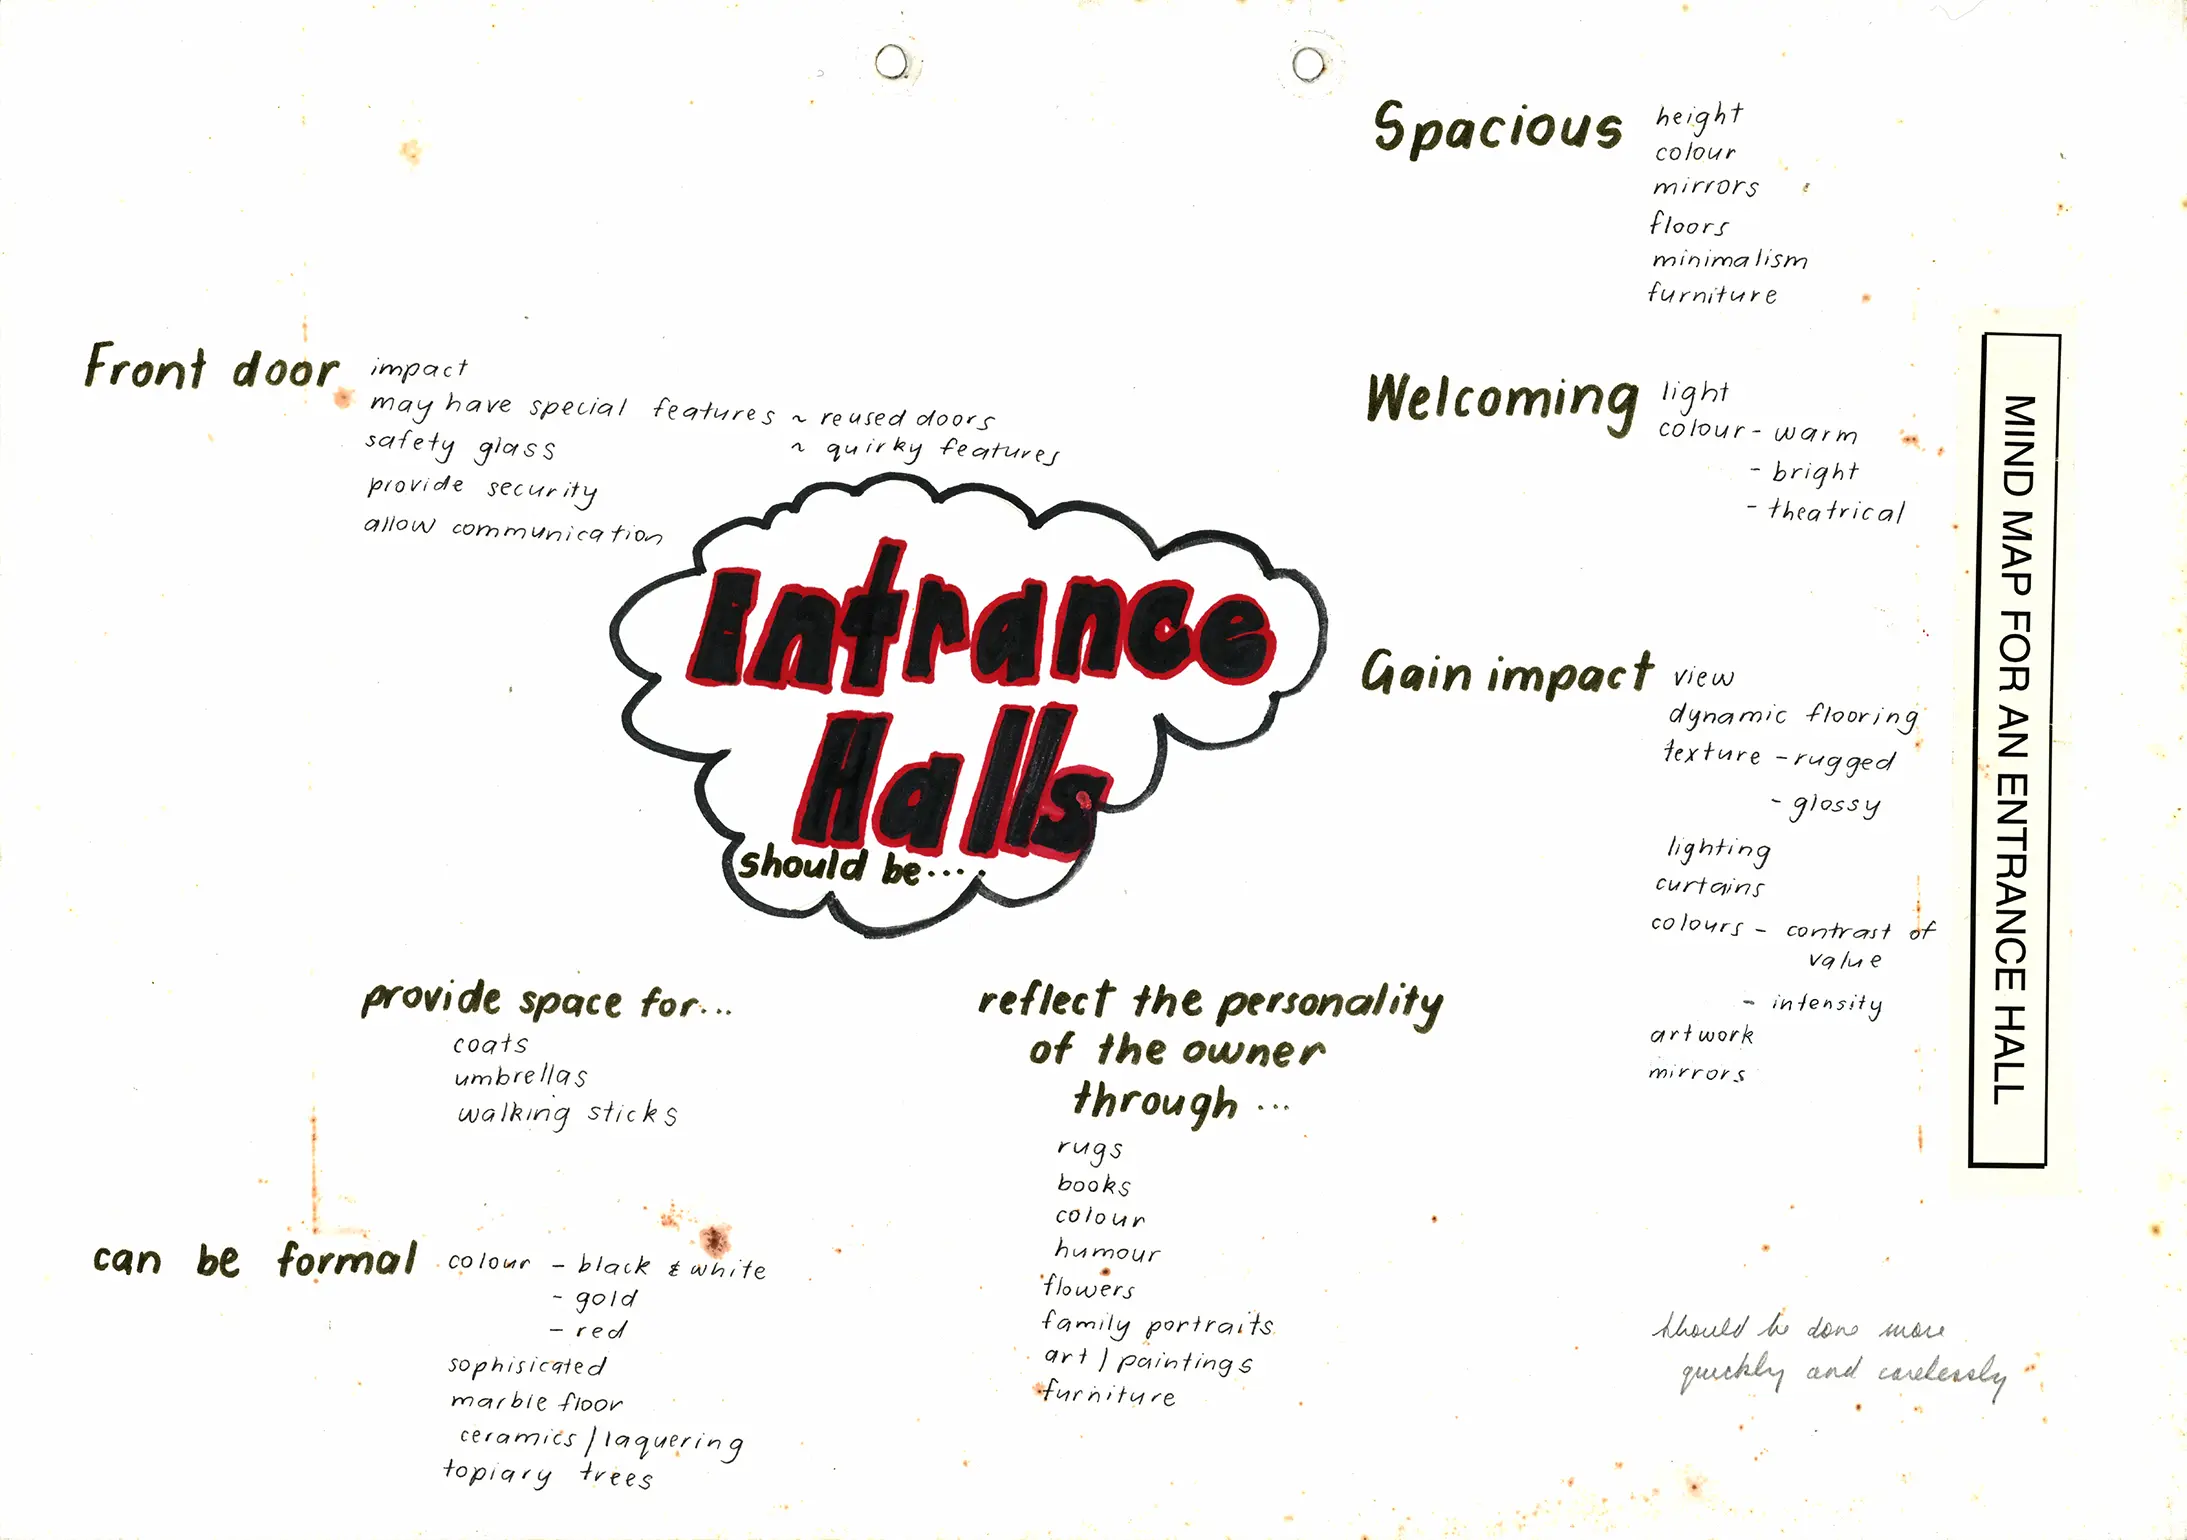 Spacious
height
colour
mirrors
floors
minimalism
furniture
Front door
impact
may have special features ~ reused doors
~ quirky features
safety glass
provide security
allow communication
Welcoming
light
colour - warm
- bright
- theatrical
Entrance
Halls
should be.....
Gain impact
view
dynamic flooring
texture - rugged
- glossy
lighting
curtains
colours - contrast of
value
- intensity
artwork
mirrors
MIND MAP FOR AN ENTRANCE HALL
provide space for...
coats
umbrellas
walking sticks
reflect the personality
of the owner
through ...
rugs
books
colour
humour
flowers
family portraits
art / paintings
furniture
can be formal
colour - black & white
- gold
- red
sophisicated
marble floor
ceramics / laquering
topiary trees
should be done more
quickly and carelessly